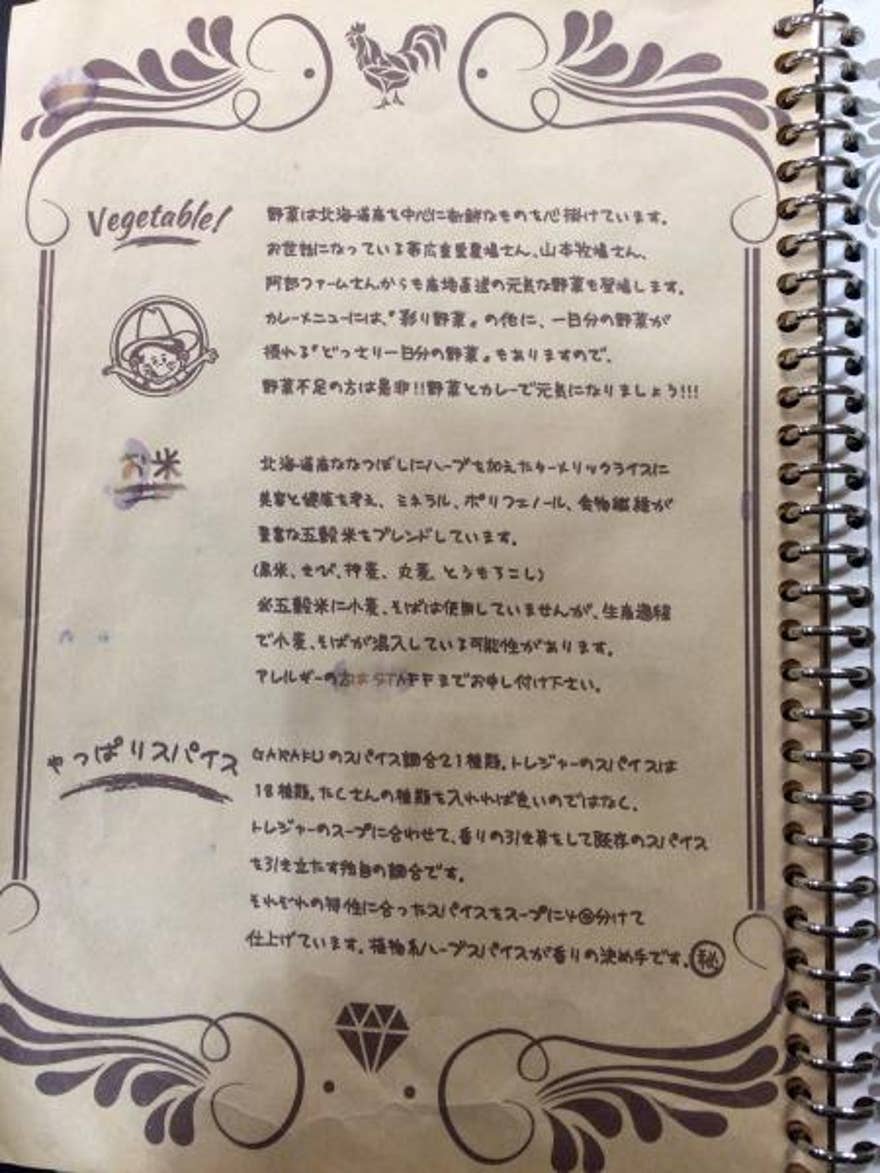 Vegetable!
野菜は北海道産を中心に新鮮なものを心掛けています。
お世話になっている帯広重堂農場さん、山本牧場さん、
阿部ファームさんからも産地直送の元気な野菜も登場します。
カレーメニューには、『彩り野菜』の他に、一日分の野菜が
摂れる『どっさり一日分の野菜』もありますので、
野菜不足の方は是非!!野菜とカレーで元気になりましょう!!!
お米
北海道産ななつぼしにハーブを加えたターメリックライスに
美容と健康を考え、ミネラル、ポリフェノール、食物繊維が
豊富な五穀米をブレンドしています。
(黒米、きび、押麦、丸麦、とうもろこし)
※五穀米に小麦、そばは使用していませんが、生産過程
で小麦、そばが混入している可能性があります。
アレルギーの方はSTAFFまでお申し付け下さい。
やっぱりスパイス
GARAKUのスパイス調合21種類。トレジャーのスパイスは
18種類。たくさんの種類を入れれば良いのではなく、
トレジャーのスープに合わせて、香りの引き算をして既存のスパイス
を引き立たす独自の調合です。
それぞれの特性に合ったスパイスをスープに4回分けて
仕上げています。植物系ハーブスパイスが香りの決め手です。㊙